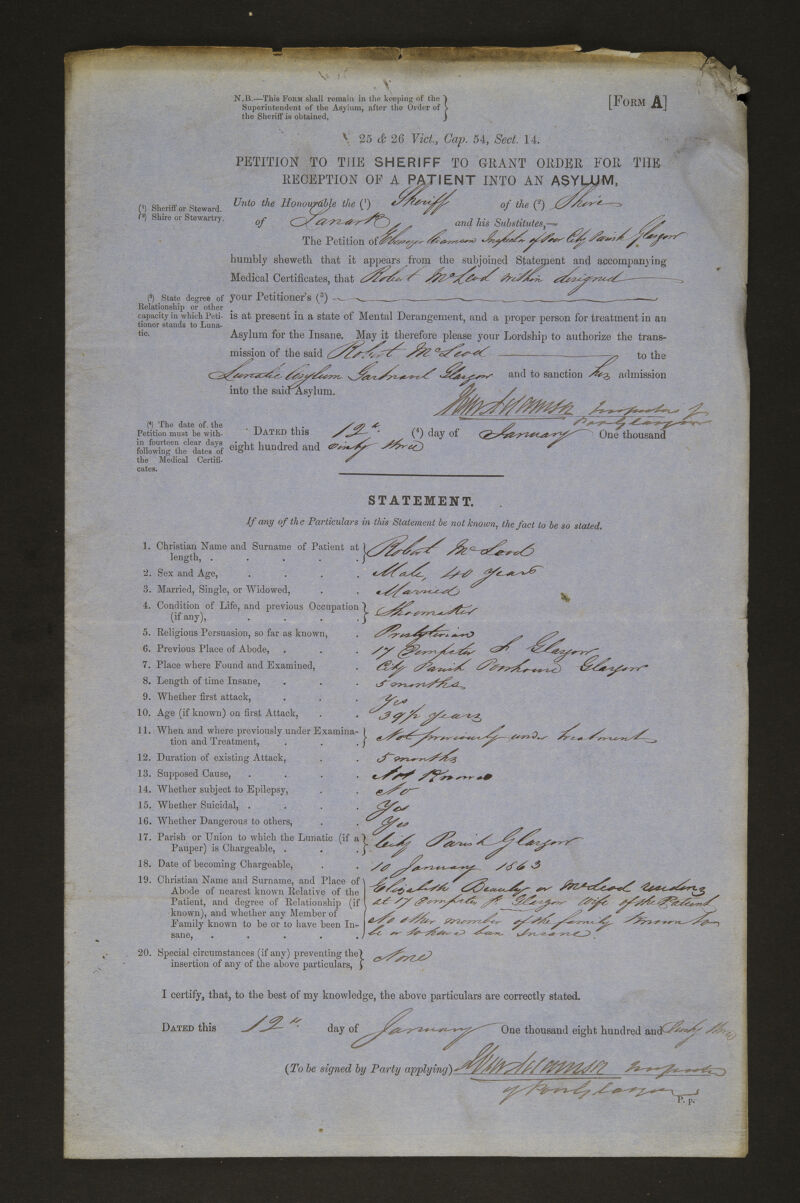 N.B.—This Form shall remain in the keeping of the
Superintendent of the Asylum, after the Order of
the Sheriff is obtained.
[Form A]
25 & 26 Vict., Cap. 54, Sect. 14.
PETITION TO THE SHERIFF TO GRANT ORDER FOR THE
RECEPTION OF A PATIENT INTO AN ASYLUM,
(1) Sheriff or Steward.
(2) Shire or Stewartry.
Unto the Honourable the (1) Sheriff of the (2) Shire
of Lanark and his Substitutes,—
The Petition of Adamson Inspector of Poor City Parish Glasgow
humbly sheweth that it appears from the subjoined Statement and accompanying
Medical Certificates, that Robert McLeod within designed
(3) State degree of
Relationship or other
capacity in which Peti-
tioner stands to Luna-
tic.
your Petitioner's (3)
is at present in a state of Mental Derangement, and a proper person for treatment in an
Asylum for the Insane. May it therefore please your Lordship to authorize the trans-
mission of the said Robert McLeod to the
Lunatic Asylum Gartnavel Glasgow and to sanction his admission
into the said Asylum.
Adamson Inspector of
Poor Glasgow
(4) The date of the
Petition must be with-
in fourteen clear days
following the dates of
the Medical Certifi-
cates.
Dated this 12th (4) day of January One thousand
eight hundred and sixty three
STATEMENT.
If any of the Particulars in this Statement be not known, the fact to be so stated.
1. Christian Name and Surname of Patient at
length, . Robert McLeod
2. Sex and Age, Male, 40 years
3. Married, Single, or Widowed, Married
4. Condition of Life, and previous Occupation
(if any), Shoemaker
5. Religious Persuasion, so far as known, Presbyterian
6. Previous Place of Abode, 17 Dempster St Glasgow
7. Place where Found and Examined, City Parish Poorhouse Glasgow
8. Length of time Insane, 5 months
9. Whether first attack, Yes
10. Age (if known) on first Attack, 39½ years
11. When and where previously under Examina-
tion and Treatment, Not previously under treatment
12. Duration of existing Attack, 5 months
13. Supposed Cause, Not Known
14. Whether subject to Epilepsy, No
15. Whether Suicidal, Yes
16. Whether Dangerous to others, Yes
17. Parish or Union to which the Lunatic (if a
Pauper) is Chargeable, City Parish Glasgow
18. Date of becoming Chargeable, 10 January 1863
19. Christian Name and Surname, and Place of
Abode of nearest known Relative of the
Patient, and degree of Relationship (if
known), and whether any Member of
Family known to be or to have been In-
sane,
Elizabeth or McLeod residing
at 17 Dempster St Glasgow Wife of the Patient
No other member of the family known to
be or to have been Insane
20. Special circumstances (if any) preventing the
insertion of any of the above particulars, None
I certify, that, to the best of my knowledge, the above particulars are correctly stated.
Dated this 12th day of January One thousand eight hundred and sixty three
(To be signed by Party applying) Adamson Inspector
of Poor Glasgow
P. p.